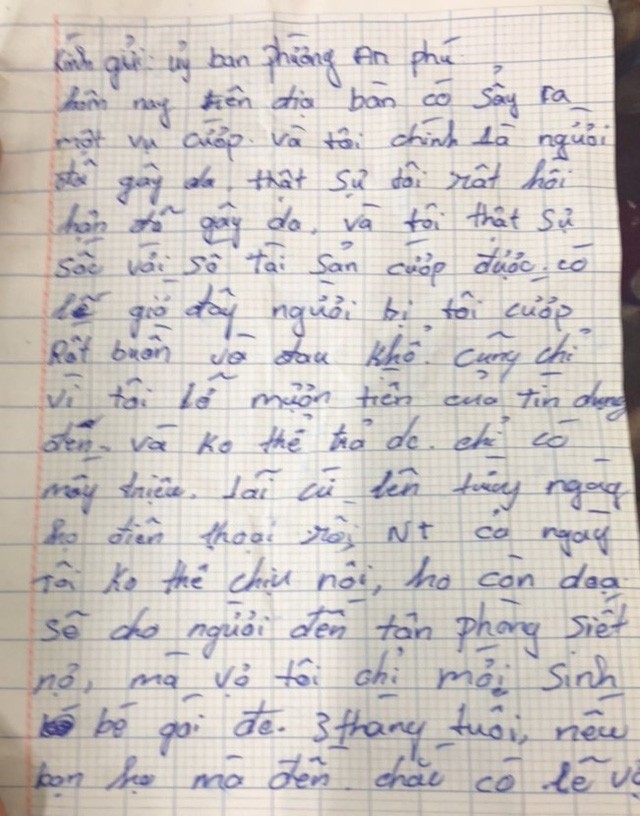 Kính gửi: uỷ ban phường An phú
hôm nay trên địa bàn có sảy ra
một vụ cướp. và tôi chính là người
đã gây da. thật sự tôi rất hối
hận đã gây da, và tôi thật sự
sốc với số tài sản cướp được. có
lẽ giờ đây người bị tôi cướp
Rất buồn và đau khổ. cũng chỉ
vì tôi lỡ mượn tiền của tín dụng
đến. và ko thể trả dc. chỉ có
mấy triệu. lãi cứ lên từng ngày
họ điện thoại rồi NT cả ngày
tôi ko thể chịu nổi, họ còn dọa
sẽ cho người đến tận phòng siết
nợ, mà vợ tôi chỉ mới sinh
bé gái đc. 3 tháng tuổi, nếu
bọn họ mà đến. chắc có lẽ vợ